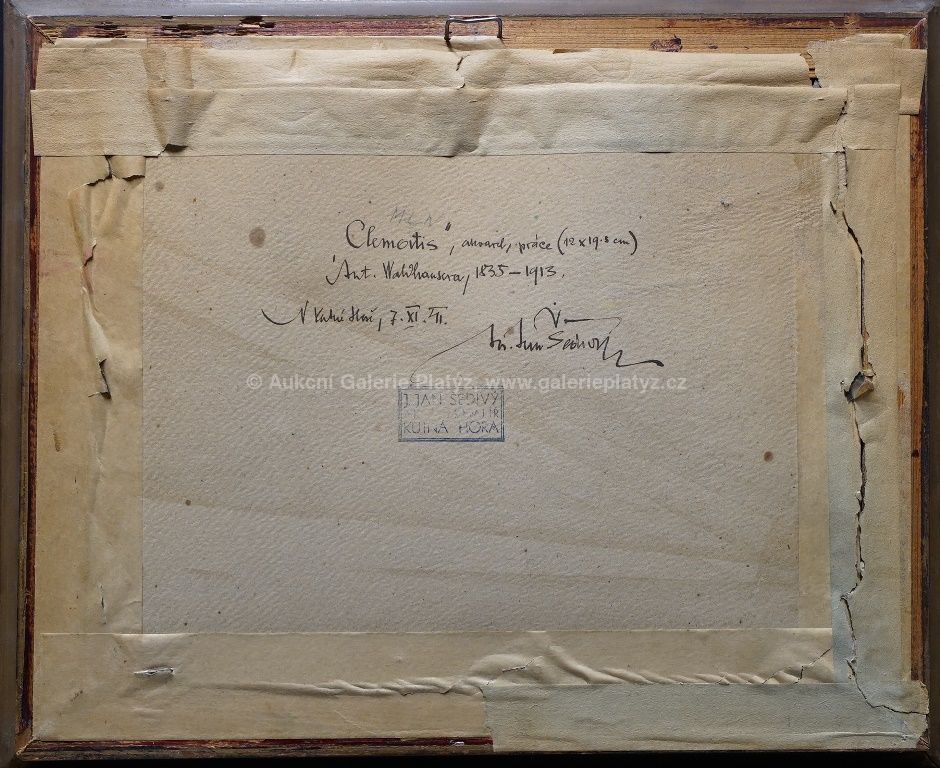 Clematis", akvarel, práce (12 x 19.5 cm)
Ant. Waldhausera, 1835–1913.
V Kutné Hoře, 7. XI.
© Aukcní Galerie Platýz, www.galerieplatyz.cz
J. JAN ŠEDIVÝ
KUTNÁ HORA